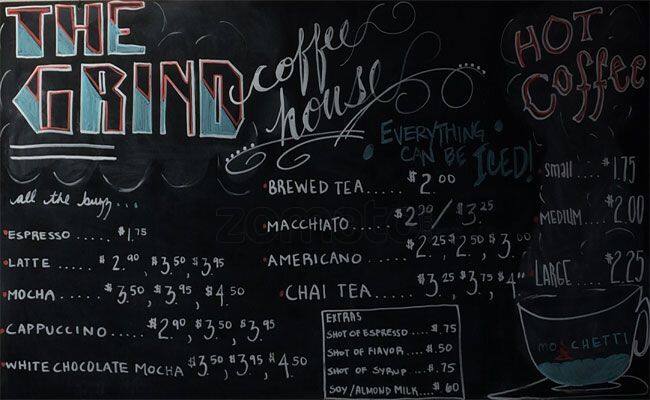 THE
GRIND
coffee
house
HOT
Coffee
EVERYTHING
CAN BE ICED!
all the buzz...
ESPRESSO ..... $1.75
LATTE ..... $2.90, $3.50, $3.95
MOCHA .... $3.50, $3.95, $4.50
CAPPUCCINO..... $2.90, $3.50, $3.95
WHITE CHOCOLATE MOCHA $3.50, $3.95, $4.50
BREWED TEA..... $2.00
MACCHIATO..... $2.90/$3.25
AMERICANO..... $2.25, $2.50, $3.00
CHAI TEA..... $3.25, $3.75, $4
EXTRAS
SHOT OF ESPRESSO .... $.75
SHOT OF FLAVOR .... $.50
SHOT OF SYRUP .... $.75
SOY/ALMOND MILK.... $.60
small .... $1.75
MEDIUM..... $2.00
LARGE .... $2.25
MO CHETTI
zomato